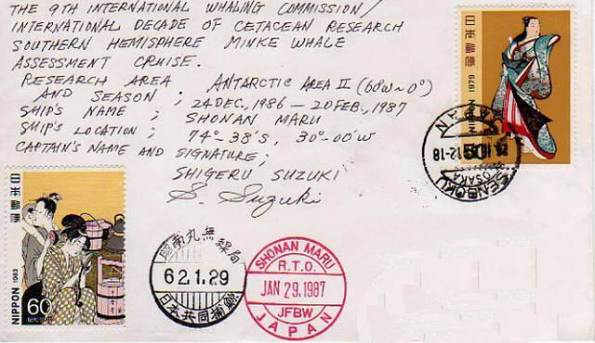 THE 9TH INTERNATIONAL WHALING COMMISSION/
INTERNATIONAL DECADE OF CETACEAN RESEARCH
SOUTHERN HEMISPHERE MINKE WHALE
ASSESSMENT CRUISE.
RESEARCH AREA ANTARCTIC AREA II (60°W~0°)
AND SEASON ; 24 DEC., 1986 – 20 FEB., 1987
SHIP'S NAME ; SHONAN MARU
SHIP'S LOCATION ; 74°-38'S, 30°-00'W
CAPTAIN'S NAME AND SIGNATURE;
SHIGERU SUZUKI
S. Suzuki
日本郵便
1979
NIPPON
JAPAN
12-18
SENBOKU
OSAKA
日本郵便
NIPPON 1983
60
昭南丸無線局
62.1.29
日本共同捕鯨
SHONAN MARU
R.T.O.
JAN 29.1987
JFBW
JAPAN